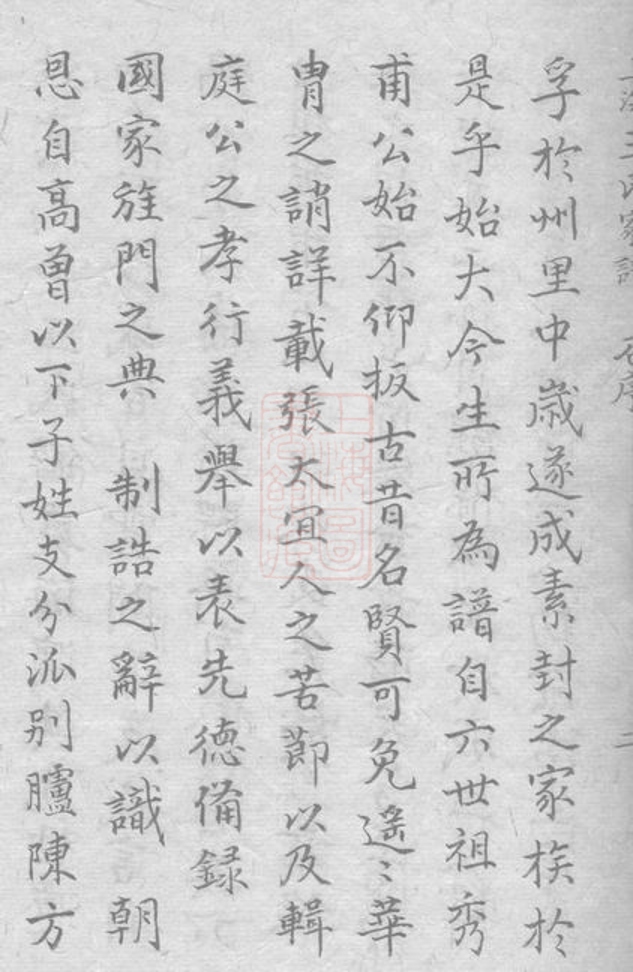 孚於州里中歲遂成素封之家族於
是乎始大今生所為譜自六世祖秀
甫公始不仰扳古昔名賢可免遥〻華
胄之誚詳載張太宜人之苦節以及輯
庭公之孝行義舉以表先德備録
國家旌門之典 制誥之辭以識 朝
恩自高曾以下子姓支分派別臚陳方